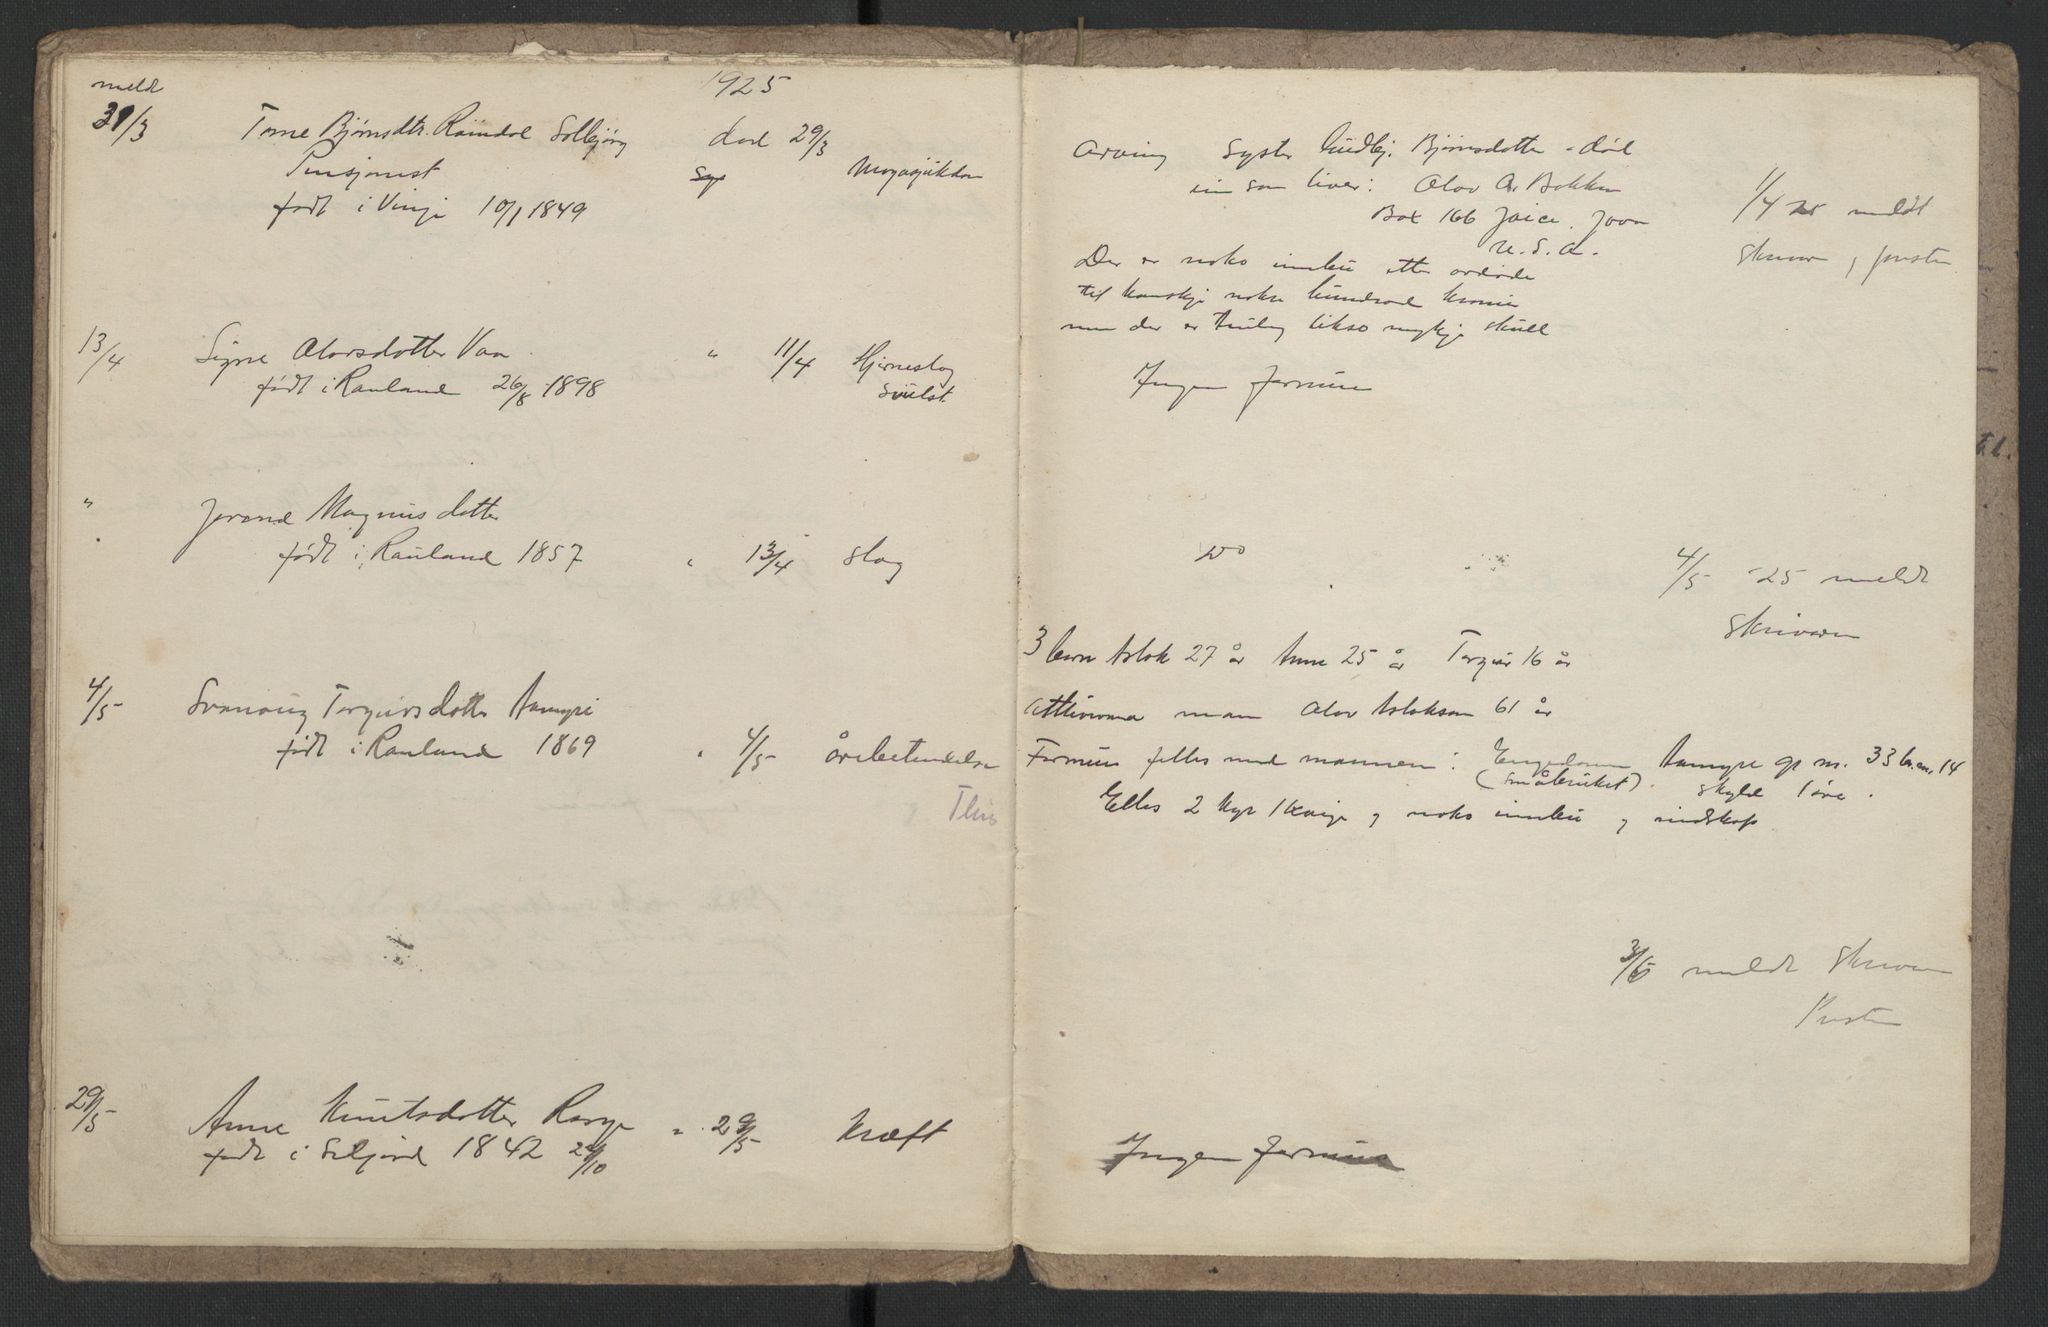 meldt
1925
31/3 Torne Bjørnsdtr. Raundal Solbjørg død 29/3
Pensjonist Magasjukdom
født i Vinje 10/1 1849
13/4 Signe Olavsdotter Vaa " 11/4 Hjerneslag
født i Rauland 26/8 1898 svulst
" Jorand Magnusdotter
født i Rauland 1857 " 13/4 slag
4/5 Svanaug Torgeirsdotter Aamyri
født i Rauland 1869 " 4/5 årebetendelse
29/5 Anne Knutsdotter " 29/5 kræft
født i Seljord 1842 /10
Arving Syster Gudbj. Bjørnsdotter - død
ein son liver: Olav A. Bakken
Box 166 Joice. Jova
U.S.A.
1/4 25 meldt
skrivar og presten
Der er noko innbu etter avdøde
til kanskje nokre hundrad kronur
men der er truleg likso mykje skuld
Ingen formue
Do
4/5 - 25 meldt
skrivaren
3 born Aslak 27 år Anne 25 år Torgeir 16 år
Attlivande mann Olav Aslakson 61 år
Formue felles med mannen: Eigedomen Aamyri g nr. 33 br.nr. 14
(småbruket). skyld 1 øre.
Elles 2 kyr 1 kvige og noko innbu og reidskap
3/6 meldt skrivaren
Presten
Ingen formue